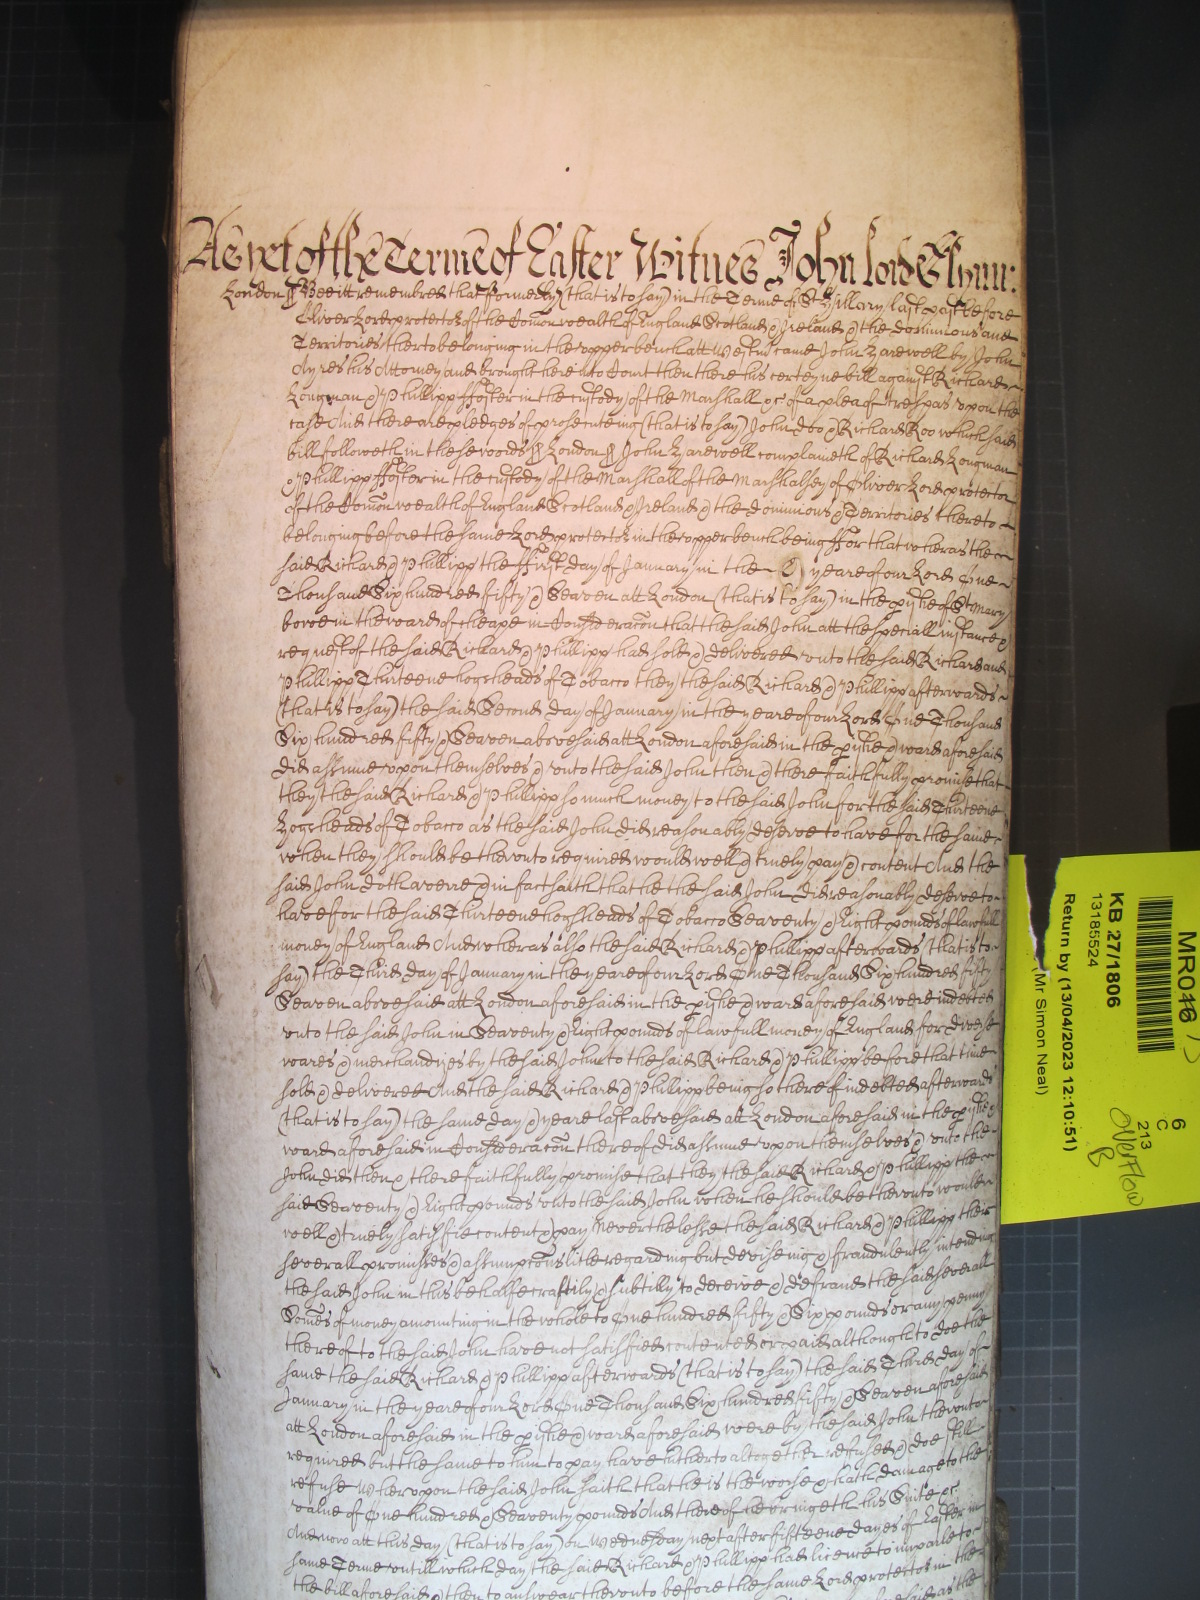 As yet of the Terme of Easter Witnes John Lord Glynn:
London ss Bee itt remembred that formerly (that is to say) in the Terme of St Hillary last past before
Oliver Lord protector of the Comon wealth of England Scotland & Ireland & the dominions and
Territories therto belonging in the upper bench att Westmr came John Harewell by John
Ayres his Attorney and brought here into Court then there his certeyne bill against Richard
Longman & Phillipp ffoster in the custody of the Marshall &c of a plea of trespas upon the
case And there are pledges of prosecuteing (that is to say) John Doo & Richard Roo which said
bill followeth in these words ss London ss John Harewell complaineth of Richard Longman
& Phillipp ffoster in the custody of the Marshall of the Marshalsey of Oliver Lord protector
of the Comon wealth of England Scotland & Ireland & the dominions & Territories thereto
belonging before the same Lord protector in the upper bench being ffor that wheras the
said Richard & Phillipp the ffirst day of January in the yeare of our Lord One
Thousand Six hundred fifty & Seaven att London (that is to say) in the pishe of St Mary
bowe in the ward of cheape in Consideracon that the said John att the speciall instance &
request of the said Richard & Phillipp had sold & delivered unto the said Richard and
Phillipp Thirteene hogsheads of Tobacco they the said Richard & Phillipp afterwards
(that is to say) the said Second day of January in the yeare of our Lord One Thousand
Six hundred fifty & Seaven abovesaid att London aforesaid in the pishe & ward aforesaid
did assume upon themselves & unto the said John then & there faithfully promise that
they the said Richard & Phillipp so much money to the said John for the said Thirteene
Hogsheads of Tobacco as the said John did reasonably deserve to have for the same
when they should be therunto required would well & truely pay & content And the
said John doth averre & in fact saith that he the said John did reasonably deserve to
have for the said Thirteene hogsheads of Tobacco Seaventy & Eight pounds of lawfull
money of England And wheras also the said Richard & Phillipp afterwards (that is to
say) the Third day of January in the yeare of our Lord One Thousand Six hundred fifty
Seaven abovesaid att London aforesaid in the pishe & ward aforesaid were indebted
unto the said John in Seaventy & Eight pounds of lawfull money of England for diverse
wares & merchandizes by the said John to the said Richard & Phillipp before that time
sold & delivered And the said Richard & Phillipp being so thereof indebted afterwards
(that is to say) the same day & yeare last abovesaid att London aforesaid in the pishe &
ward aforesaid in Consideracon thereof did assume upon themselves & unto the
John did then & there faithfully promise that they the said Richard & Phillipp the
said Seaventy & Eight pounds unto the said John when he should be therunto would
well & truely satisfie content & pay Neverthelesse the said Richard & Phillipp their
severall promisses & assumpcons litle regarding but deviseing & fraudulently intending
the said John in this behalfe craftily & subtilly to deceive & defraud the said severall
Somes of money amounting in the whole to One hundred fifty & Six pounds or any penny
thereof to the said John have not satisfied contented or paid although to doe the
same the said Richard & Phillipp afterwards (that is to say) the said Third day of
January in the yeare of our Lord One Thousand Six hundred fifty & Seaven aforesaid
att London aforesaid in the pishe & ward aforesaid were by the said John therunto
required but the same to him to pay have hitherto altogether refused & doe still
refuse Wherupon the said John saith that he is the worse & hath damage to the
value of One hundred & Seaventy pounds And therof he bringeth his Suite &c
And now att this day (that is to say) on Wednesday next after fifteene dayes of Easter in
same Terme untill which day the said Richard & Phillipp had licence to imparle to
the bill aforesaid & then to answear therunto before the same Lord protector in the
KB 27/1806
13185524
Return by (13/04/2023 12:10:51)
(Mr Simon Neal)
6
C
213
Overflow
B